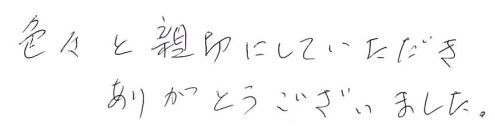 色々と親切にしていただき
ありがとうございました。